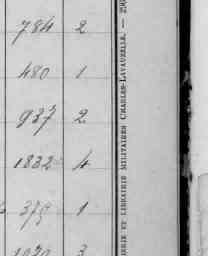 784 2
480 1
937 2
1832 4
375 1
1070 3
RIE ET LIBRAIRIE MILITAIRES CHARLES-LAVAUZELLE. — 290